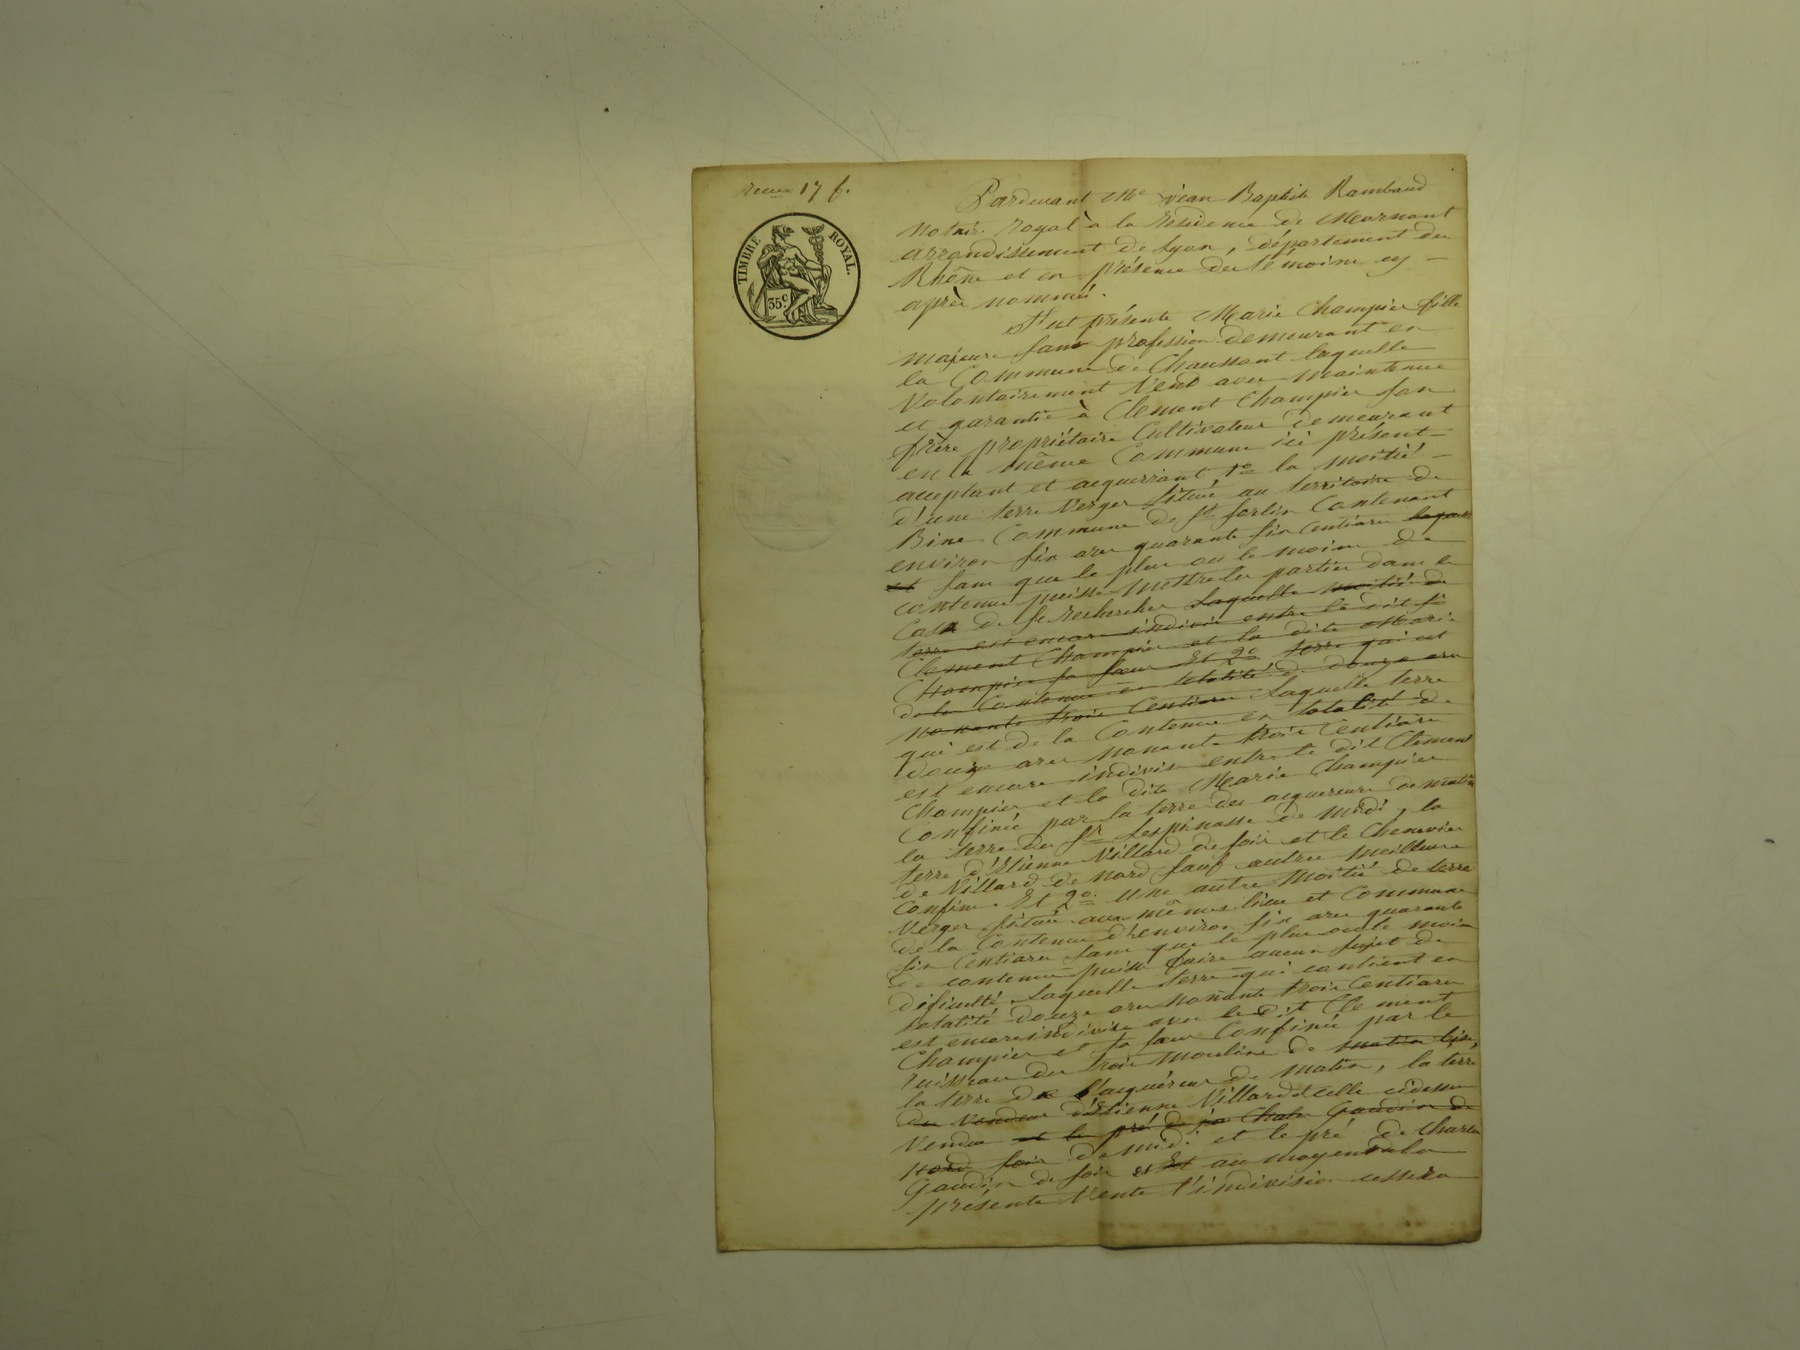 17 f.
TIMBRE ROYAL.
35c.
Pardevant Me Jean Baptiste Rambaud
Notaire Royal à la Résidence de Mornant
arrondissement de Lyon, département du
Rhône et en présence des témoins cy
après nommés.
S'est présente Marie Champier fille
majeure sans profession demeurant en
la Commune de Chaussant laquelle
Volontairement Vend avec maintenue
et garantie à Clement Champier son
frère propriétaire Cultivateur demeurant
en la même Commune ici présent
acceptant et acquerrant 1o la moitié
d'une terre Verger Située au territoire de
Bine Commune de St Sorlin Contenant
environ six ares quarante six Centiares
et sans que le plus ou le moins de
contenue puisse mettre les parties dans le
Cas de se rechercher Laquelle moitié de
terre est encore indivise entre le dit
Clement Champier et la dite Marie
Champier sa sœur Et 2o terre qui est
de la Contenue en totalité de douze ares
nonante trois Centiares Laquelle terre
qui est de la Contenue en totalité de
douze ares nonante trois Centiares
est encore indivise entre le dit Clement
Champier et la dite Marie Champier
Confinée par la terre des acquereurs de matin
la terre du Sr Lespinasse de midi, la
terre d'Etienne Villard de soir et le Chenevier
de Villard de nord sauf autres meilleurs
Confins. Et 2o. Une autre Moitié de terre
Verger située aux mêmes lieu et Commune
de la Contenue d'environ six ares quarante
six Centiares sans que le plus ou le moins
de contenue puisse faire aucun sujet de
dificulté. Laquelle terre qui contient en
totalité douze ares nonante trois Centiares
est encore indivise avec le dit Clement
Champier et sa sœur Confinée par le
ruisseau des trois Moulins de matin
la terre de l'acquéreur de matin, la terre
du Vendeur d'Etienne Villard et celle cidessus
Vendue et le pré de Gaudin de
Nord soir de midi et le pré de Charles
Gaudin de soir et Et au moyen de la
présente Vente l'indivision cessera